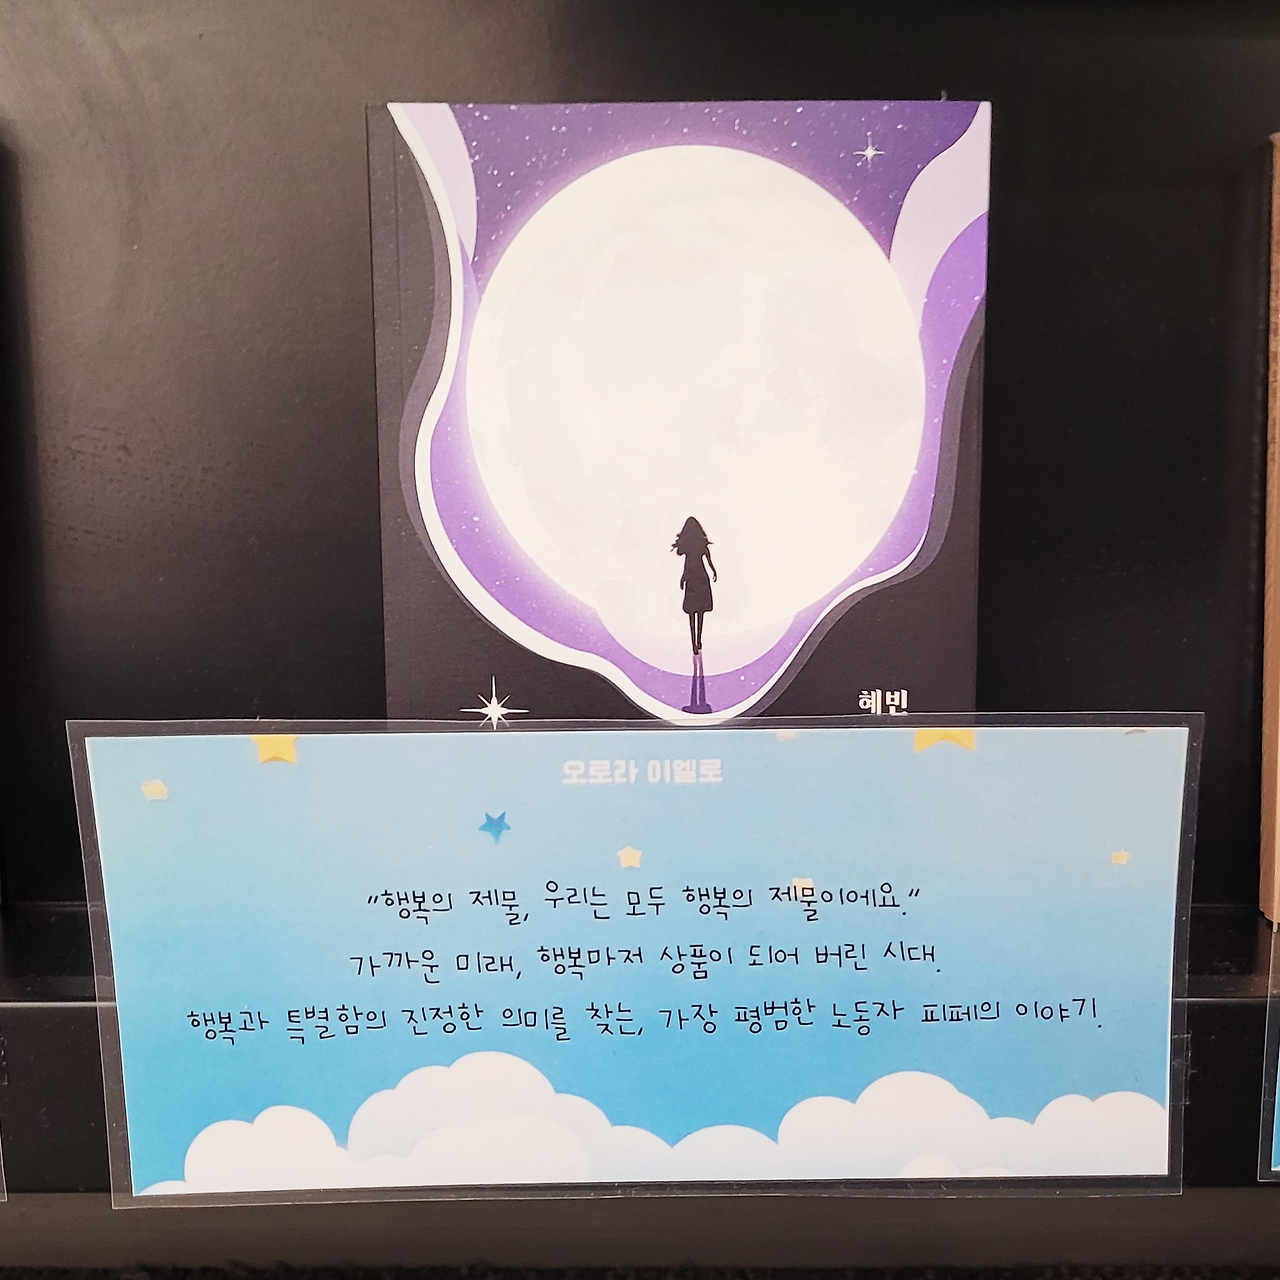 혜빈
오로라 이엘로
"행복의 제물, 우리는 모두 행복의 제물이에요."
가까운 미래, 행복마저 상품이 되어 버린 시대.
행복과 특별함의 진정한 의미를 찾는, 가장 평범한 노동자 피페의 이야기.